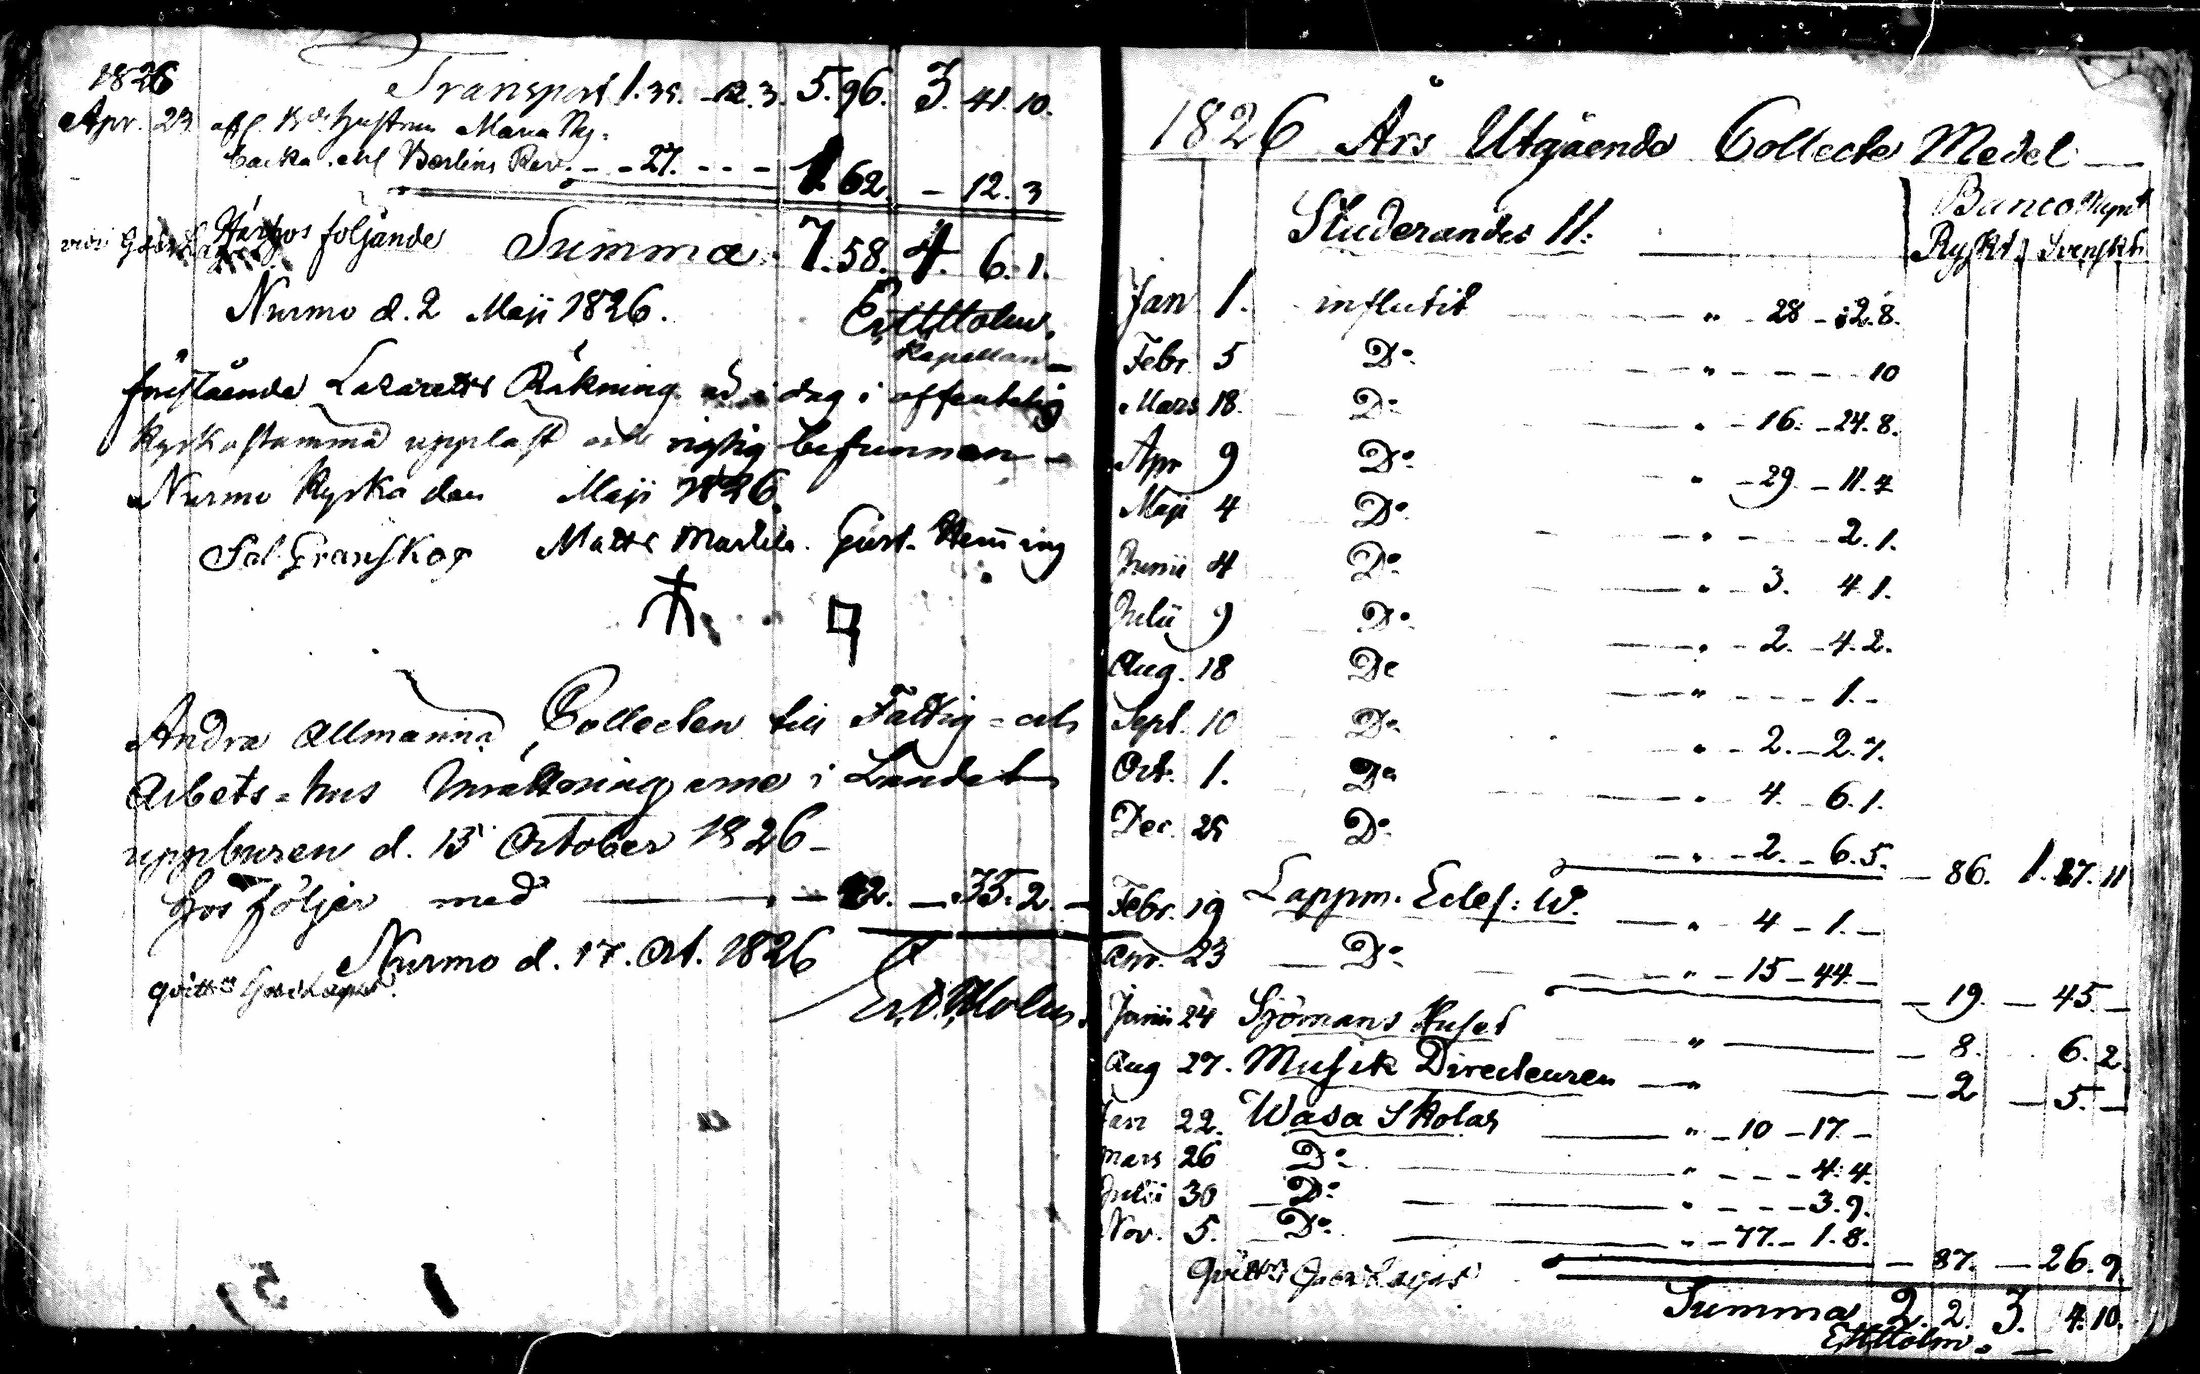 1826
Transport 1.35. -12.3. 5.96. 3. 41. 10.
Apr. 23 afl. Hustrun Maria Ny-
backa och Berlins Rev. - - 27. - - - 1.62. - 12.3
Härhos följande Summa 7.58. 4. 6.1.
Nurmo d. 2 Maji 1826.
Er. Uttholm.
Kapellan
förestående Lazaretts Räkning är i dag i offentelig
Kyrkostämma uppläst och rigtig befunnen -
Nurmo Kyrka den Maji 1826.
Sal. Franskog Matts Markila. Gust. Hemming
Andra Allmänna Collecten till Fattig- och
Arbets-hus Inrättningarne i Landet
uppburen d. 15 October 1826-
hos följer med - 12. - 35.2. -
Nurmo d. 17. Oct. 1826
Er. Uttholm.
1826 Års Utgående Collecte Medel
Studerandes 11:
Banco Mynt
Ryskt. Svenskt.
Jan 1. influtit " - 28 - 12.8.
Febr. 5 Do " - - - - 10
Mars 18. Do " - 16. - 24.8.
Apr 9 Do " - 29. - 11.7
Maji 4 Do " - - - 2.1.
Junii 4 Do " 3. 4 1.
Julii 9 Do " - 2. - 4.2.
Aug. 18 Do " - - - 1. -
Sept. 10 Do " - 2. - 2.7.
Oct. 1. Do " 4. - 6.1.
Dec. 25 Do " - 2. - 6.5. - 86. 1.27.11
Febr. 19 Lappm. Eclef: W. " 4 - 1. -
Apr. 23 Do " - 15 - 44. - - 19. - 45. -
Junii 24 Sjömans Huset " - 8. 6.2
Aug 27. Musik Directeuren " - 2 - 5. -
Jan 22. Wasa Skolar " - 10 - 17. -
Mars 26 Do " - - - 4.4.
Julii 30 Do " - - - 3.9.
Nov. 5. Do " - 77. - 1.8. - 87. - 26.9.
Summa 2. 2. 3. 4.10.
Er. Uttholm.